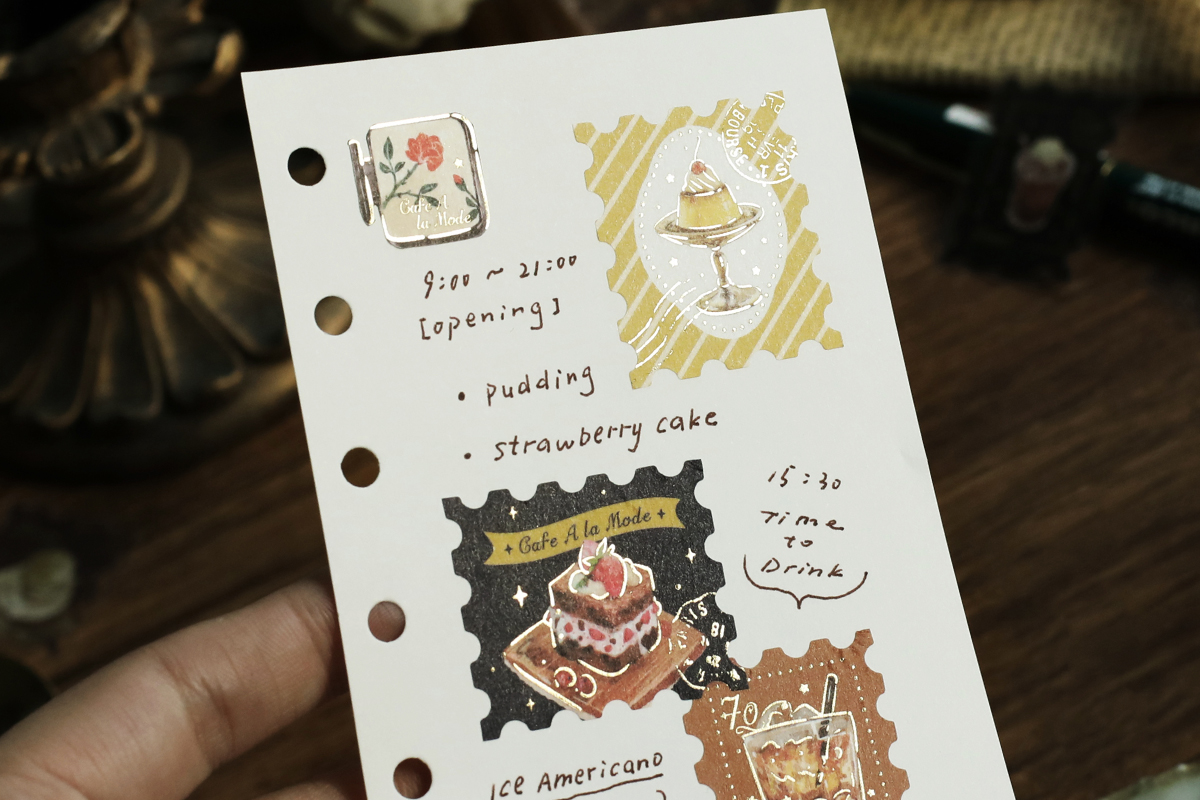 Cafe A
la Mode
9:00 ~ 21:00
[opening]
• pudding
• strawberry cake
Cafe A la Mode
15:30
Time
to
Drink
70
Ice Americano